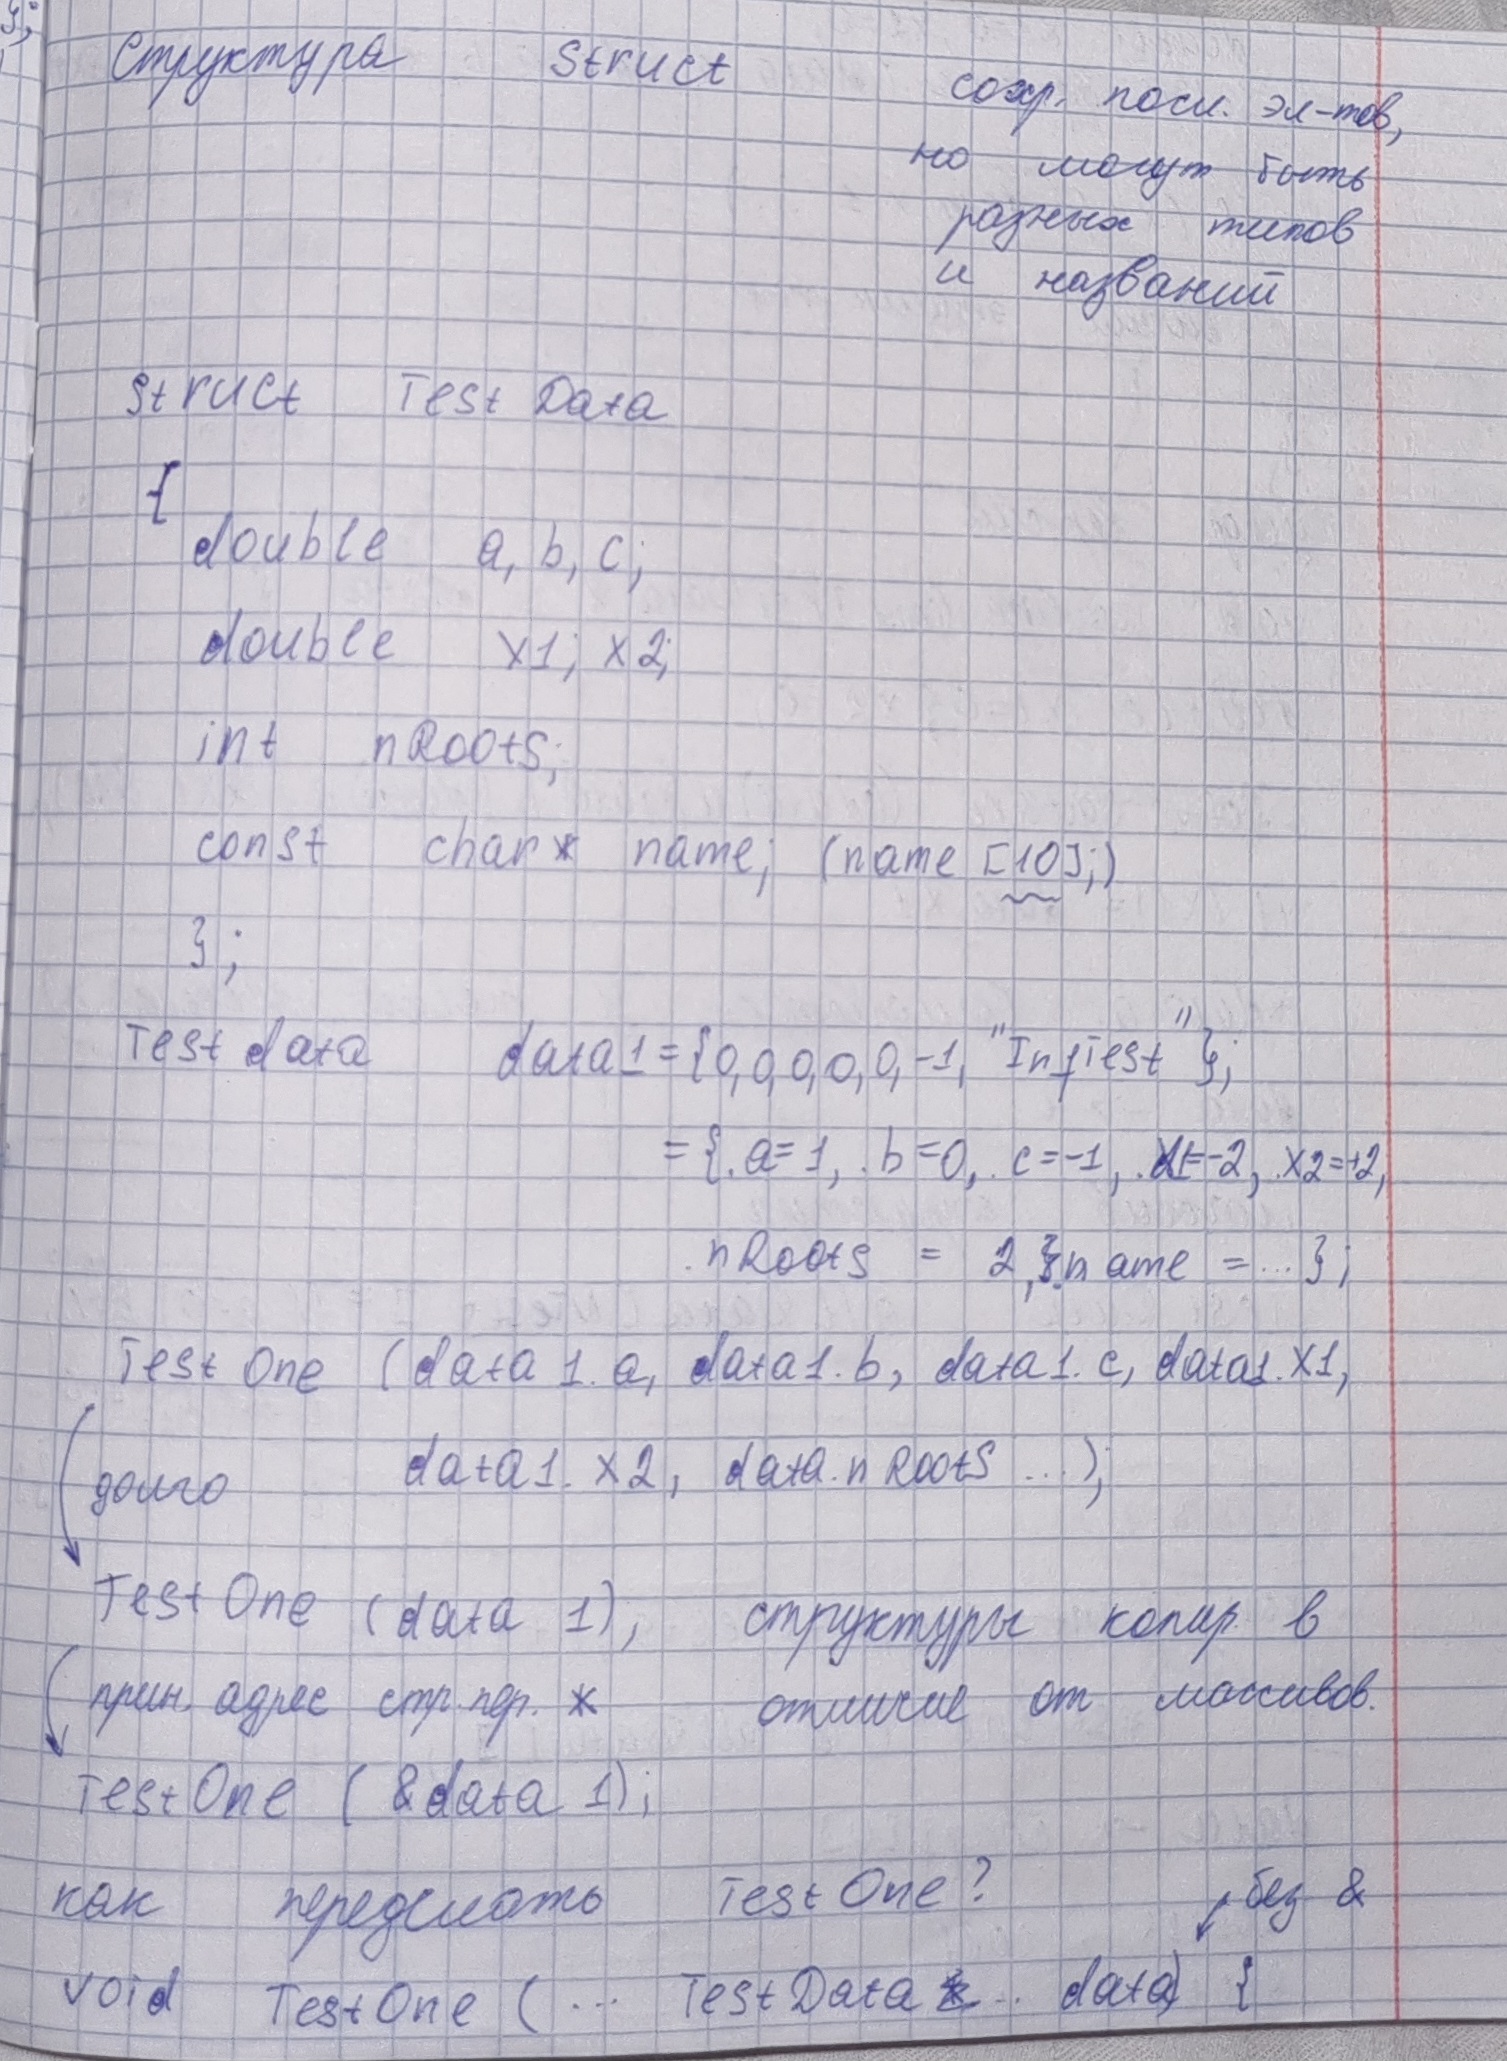 Структура struct
сохр. посл. эл-тов,
но могут быть
разных типов
и названий
struct TestData
{
double a, b, c;
double x1; x2;
int nRoots;
const char* name; (name [10];)
};
Test data data1 = {0, 0, 0, 0, 0, -1, "InfTest"};
= {.a=1, .b=0, .c=-1, .x1=-2, .x2=+2,
.nRoots = 2, .name = ...};
TestOne (data1.a, data1.b, data1.c, data1.x1,
долго data1.x2, data.nRoots ...);
TestOne (data1); структуры копир. в
прин. адрес стр. пер. * отличие от массивов.
TestOne (&data1);
как переделать TestOne? без &
void TestOne (... TestData* ... data) {